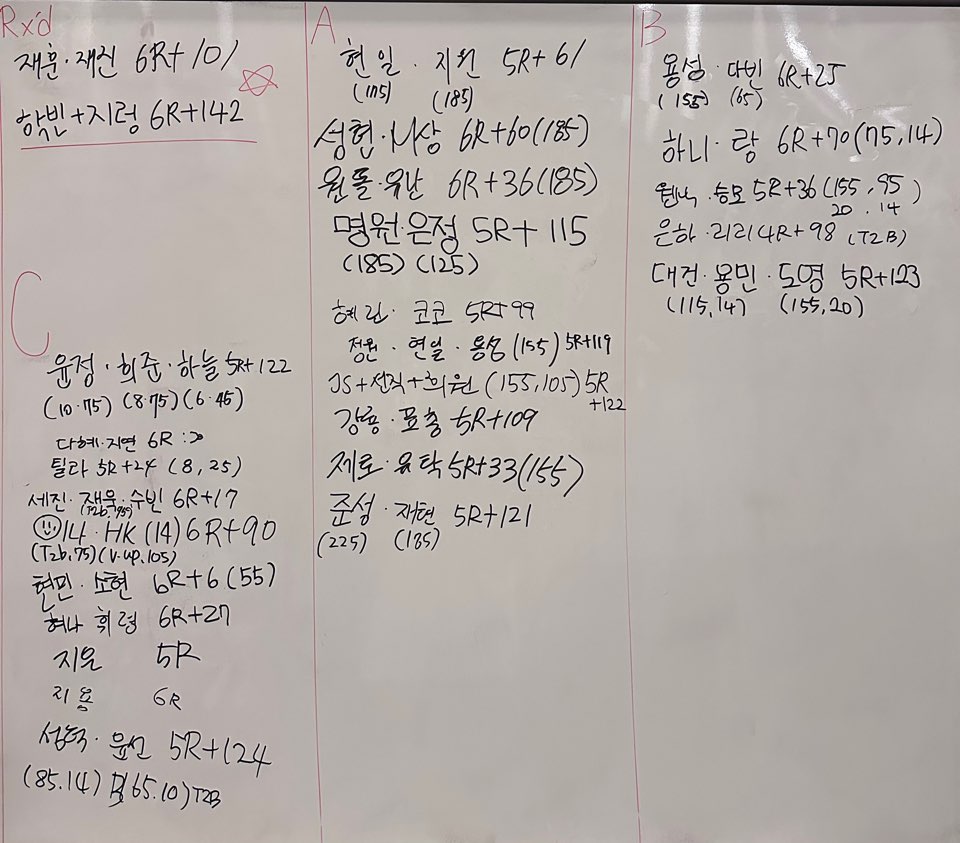 Rx'd
재훈·재진 6R+101
학빈+지령 6R+142
C
윤정·희준·하늘 5R+122
(10·75) (8·75) (6·45)
다혜·지연 6R :>
틸라 5R+24 (8, 25)
세진·재욱·수빈 6R+17
이나·HK (14) 6R+90
(T2b,75) (V-up,105)
현민·소현 6R+6 (55)
혜나 휘령 6R+27
지운 5R
지용 6R
성혁·윤선 5R+124
(85.14) (65.10) T2B
A
현일·지원 5R+61
(185)
성현· 6R+60 (185)
6R+36 (185)
명원·은정 5R+115
(185) (125)
혜린·코코 5R+99
정원·현일·용성 (155) 5R+119
JS+선직+희원 (155, 105) 5R
+122
강룡·표충 5R+109
제로·유탁 5R+33 (155)
준성·재현 5R+121
(225) (185)
B
용성·다빈 6R+25
(155) (65)
하니·랑 6R+70 (75, 14)
승모 5R+36 (155, 95)
20 . 14
은하·리리 4R+98 (T2B)
대건·용민·도영 5R+123
(115,14) (155,20)